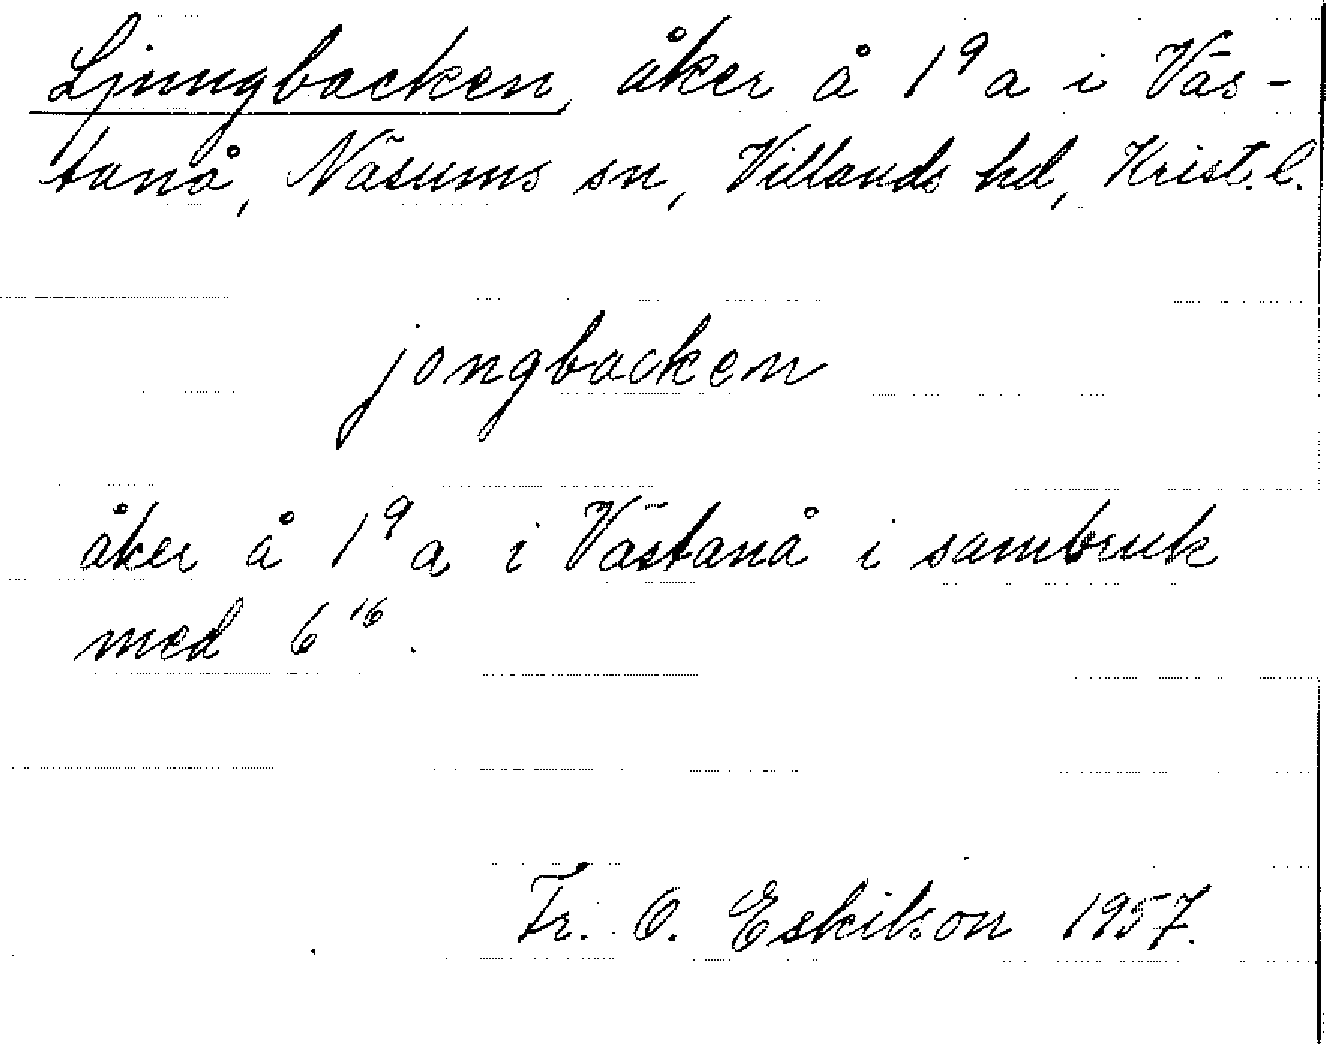 Ljungbacken, åker å 1⁹a i Väs-
tanå, Näsums sn, Villands hd, Krist. l.
jongbacken
åker å 1⁹a i Västanå i sambruk
med 6¹⁶.
Fr. O. Eskilson 1957.